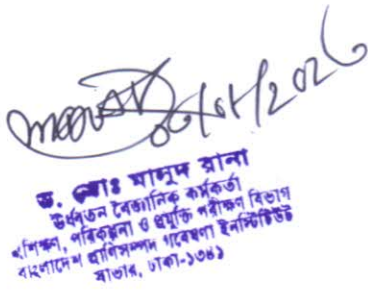 06/01/2026
ড. মোঃ মাসুদ রানা
ঊর্ধ্বতন বৈজ্ঞানিক কর্মকর্তা
প্রশিক্ষণ, পরিকল্পনা ও প্রযুক্তি পরীক্ষণ বিভাগ
বাংলাদেশ প্রাণিসম্পদ গবেষণা ইনস্টিটিউট
সাভার, ঢাকা-১৩৪১